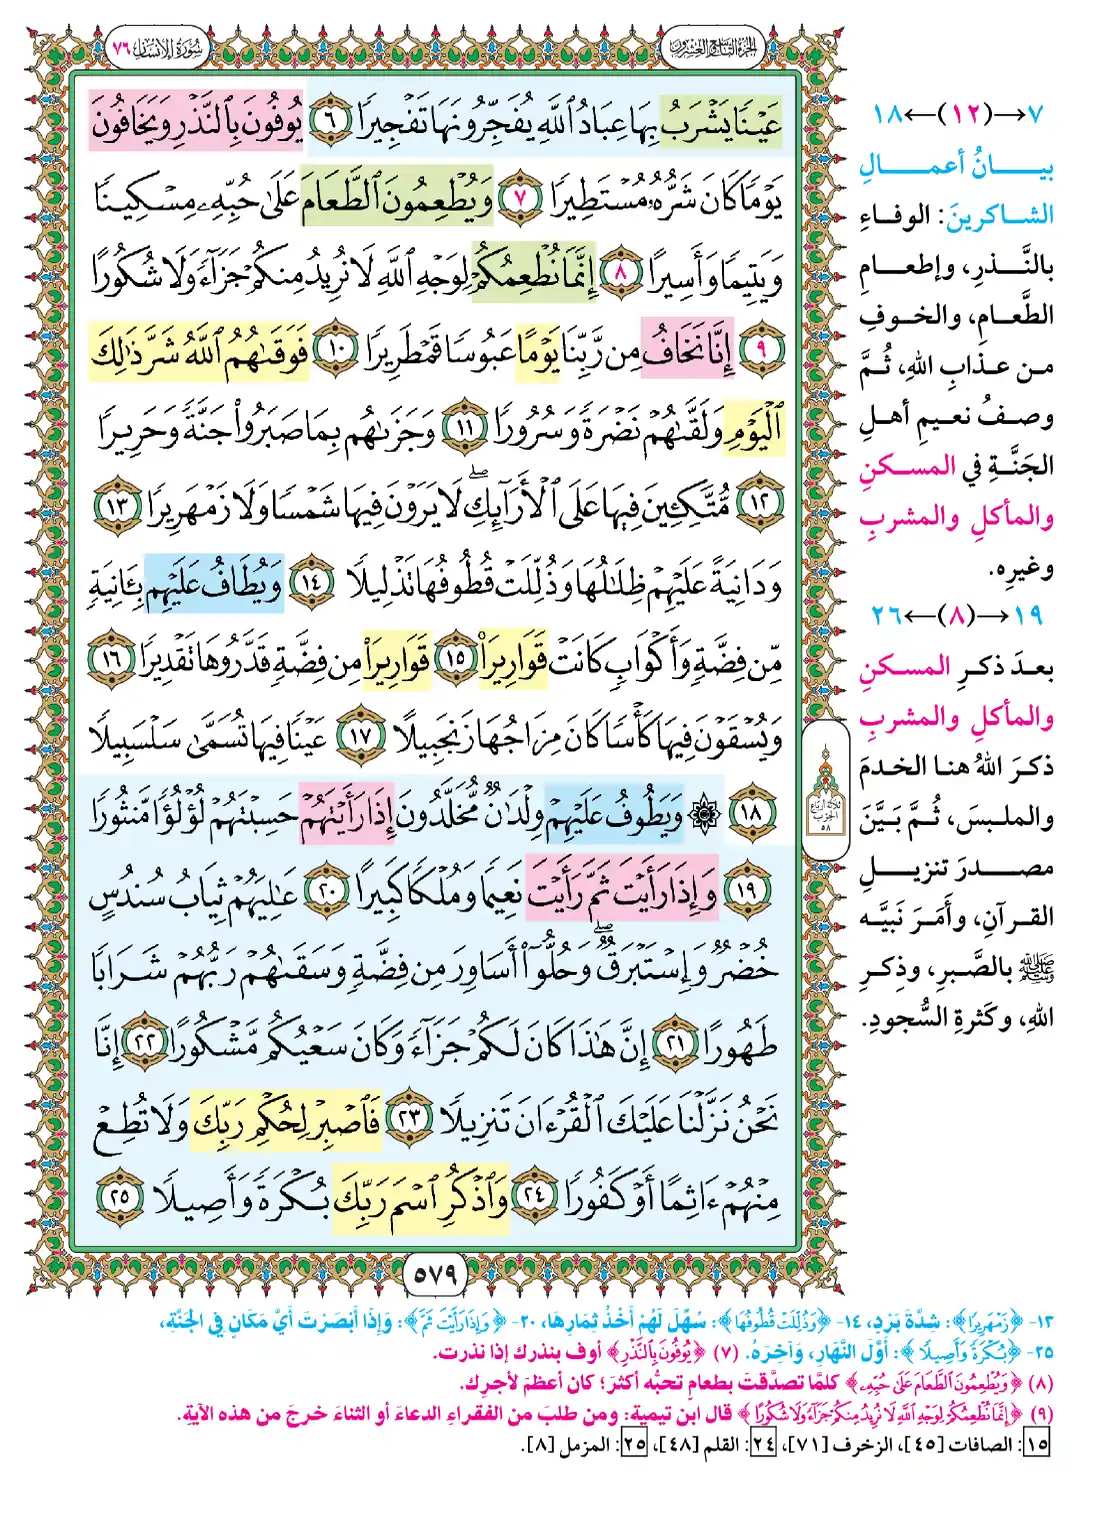 الجزء التاسع والعشرون
سورة الإنسان ٧٦
عَيْنًا يَشْرَبُ بِهَا عِبَادُ ٱللَّهِ يُفَجِّرُونَهَا تَفْجِيرًا ٦ يُوفُونَ بِٱلنَّذْرِ وَيَخَافُونَ
يَوْمًا كَانَ شَرُّهُۥ مُسْتَطِيرًا ٧ وَيُطْعِمُونَ ٱلطَّعَامَ عَلَىٰ حُبِّهِۦ مِسْكِينًا
وَيَتِيمًا وَأَسِيرًا ٨ إِنَّمَا نُطْعِمُكُمْ لِوَجْهِ ٱللَّهِ لَا نُرِيدُ مِنكُمْ جَزَآءً وَلَا شُكُورًا
٩ إِنَّا نَخَافُ مِن رَّبِّنَا يَوْمًا عَبُوسًا قَمْطَرِيرًا ١٠ فَوَقَىٰهُمُ ٱللَّهُ شَرَّ ذَٰلِكَ
ٱلْيَوْمِ وَلَقَّىٰهُمْ نَضْرَةً وَسُرُورًا ١١ وَجَزَىٰهُم بِمَا صَبَرُوا۟ جَنَّةً وَحَرِيرًا
١٢ مُّتَّكِـِٔينَ فِيهَا عَلَى ٱلْأَرَآئِكِ ۖ لَا يَرَوْنَ فِيهَا شَمْسًا وَلَا زَمْهَرِيرًا ١٣
وَدَانِيَةً عَلَيْهِمْ ظِلَٰلُهَا وَذُلِّلَتْ قُطُوفُهَا تَذْلِيلًا ١٤ وَيُطَافُ عَلَيْهِم بِـَٔانِيَةٍ
مِّن فِضَّةٍ وَأَكْوَابٍ كَانَتْ قَوَارِيرَا۠ ١٥ قَوَارِيرَا۟ مِن فِضَّةٍ قَدَّرُوهَا تَقْدِيرًا ١٦
وَيُسْقَوْنَ فِيهَا كَأْسًا كَانَ مِزَاجُهَا زَنجَبِيلًا ١٧ عَيْنًا فِيهَا تُسَمَّىٰ سَلْسَبِيلًا
١٨ ۞ وَيَطُوفُ عَلَيْهِمْ وِلْدَٰنٌ مُّخَلَّدُونَ إِذَا رَأَيْتَهُمْ حَسِبْتَهُمْ لُؤْلُؤًا مَّنثُورًا
١٩ وَإِذَا رَأَيْتَ ثَمَّ رَأَيْتَ نَعِيمًا وَمُلْكًا كَبِيرًا ٢٠ عَٰلِيَهُمْ ثِيَابُ سُندُسٍ
خُضْرٌ وَإِسْتَبْرَقٌ ۖ وَحُلُّوٓا۟ أَسَاوِرَ مِن فِضَّةٍ وَسَقَىٰهُمْ رَبُّهُمْ شَرَابًا
طَهُورًا ٢١ إِنَّ هَٰذَا كَانَ لَكُمْ جَزَآءً وَكَانَ سَعْيُكُم مَّشْكُورًا ٢٢ إِنَّا
نَحْنُ نَزَّلْنَا عَلَيْكَ ٱلْقُرْءَانَ تَنزِيلًا ٢٣ فَٱصْبِرْ لِحُكْمِ رَبِّكَ وَلَا تُطِعْ
مِنْهُمْ ءَاثِمًا أَوْ كَفُورًا ٢٤ وَٱذْكُرِ ٱسْمَ رَبِّكَ بُكْرَةً وَأَصِيلًا ٢٥
ثلاثة أرباع
الحزب
٥٨
٥٧٩
٧→(١٢)←١٨
بيــانُ أعمــالِ
الشاكرينَ: الوفاءِ
بالنَّذرِ، وإطعامِ
الطَّعامِ، والخوفِ
من عذابِ اللهِ، ثُمَّ
وصفُ نعيمِ أهلِ
الجَنَّةِ في المسكنِ
والمأكلِ والمشربِ
وغيرِه.
١٩→(٨)←٢٦
بعدَ ذكرِ المسكنِ
والمأكلِ والمشربِ
ذكرَ اللهُ هنا الخدمَ
والملبسَ، ثُمَّ بَيَّنَ
مصدرَ تنزيلِ
القرآنِ، وأَمَرَ نَبيَّه
ﷺ بالصَّبرِ، وذِكرِ
اللهِ، وكَثرةِ السُّجودِ.
١٣- ﴿زَمْهَرِيرًا﴾: شِدَّةَ بَرْدٍ، ١٤- ﴿وَذُلِّلَتْ قُطُوفُهَا﴾: سُهِّلَ لَهُمْ أَخْذُ ثِمَارِهَا، ٢٠- ﴿وَإِذَا رَأَيْتَ ثَمَّ﴾: وَإِذَا أَبْصَرْتَ أَيَّ مَكَانٍ فِي الجَنَّةِ،
٢٥- ﴿بُكْرَةً وَأَصِيلًا﴾: أَوَّلَ النَّهَارِ، وَآخِرَهُ. (٧) ﴿يُوفُونَ بِٱلنَّذْرِ﴾ أوف بنذرك إذا نذرت.
(٨) ﴿وَيُطْعِمُونَ ٱلطَّعَامَ عَلَىٰ حُبِّهِۦ﴾ كلمَّا تصدَّقتَ بطعامٍ تحبُّه أكثرَ؛ كان أعظمَ لأجرِك.
(٩) ﴿إِنَّمَا نُطْعِمُكُمْ لِوَجْهِ ٱللَّهِ لَا نُرِيدُ مِنكُمْ جَزَآءً وَلَا شُكُورًا﴾ قال ابن تيمية: ومن طلبَ من الفقراءِ الدعاءَ أو الثناءَ خرجَ من هذه الآيةِ.
١٥: الصافات [٤٥]، الزخرف [٧١]، ٢٤: القلم [٤٨]، ٢٥: المزمل [٨].